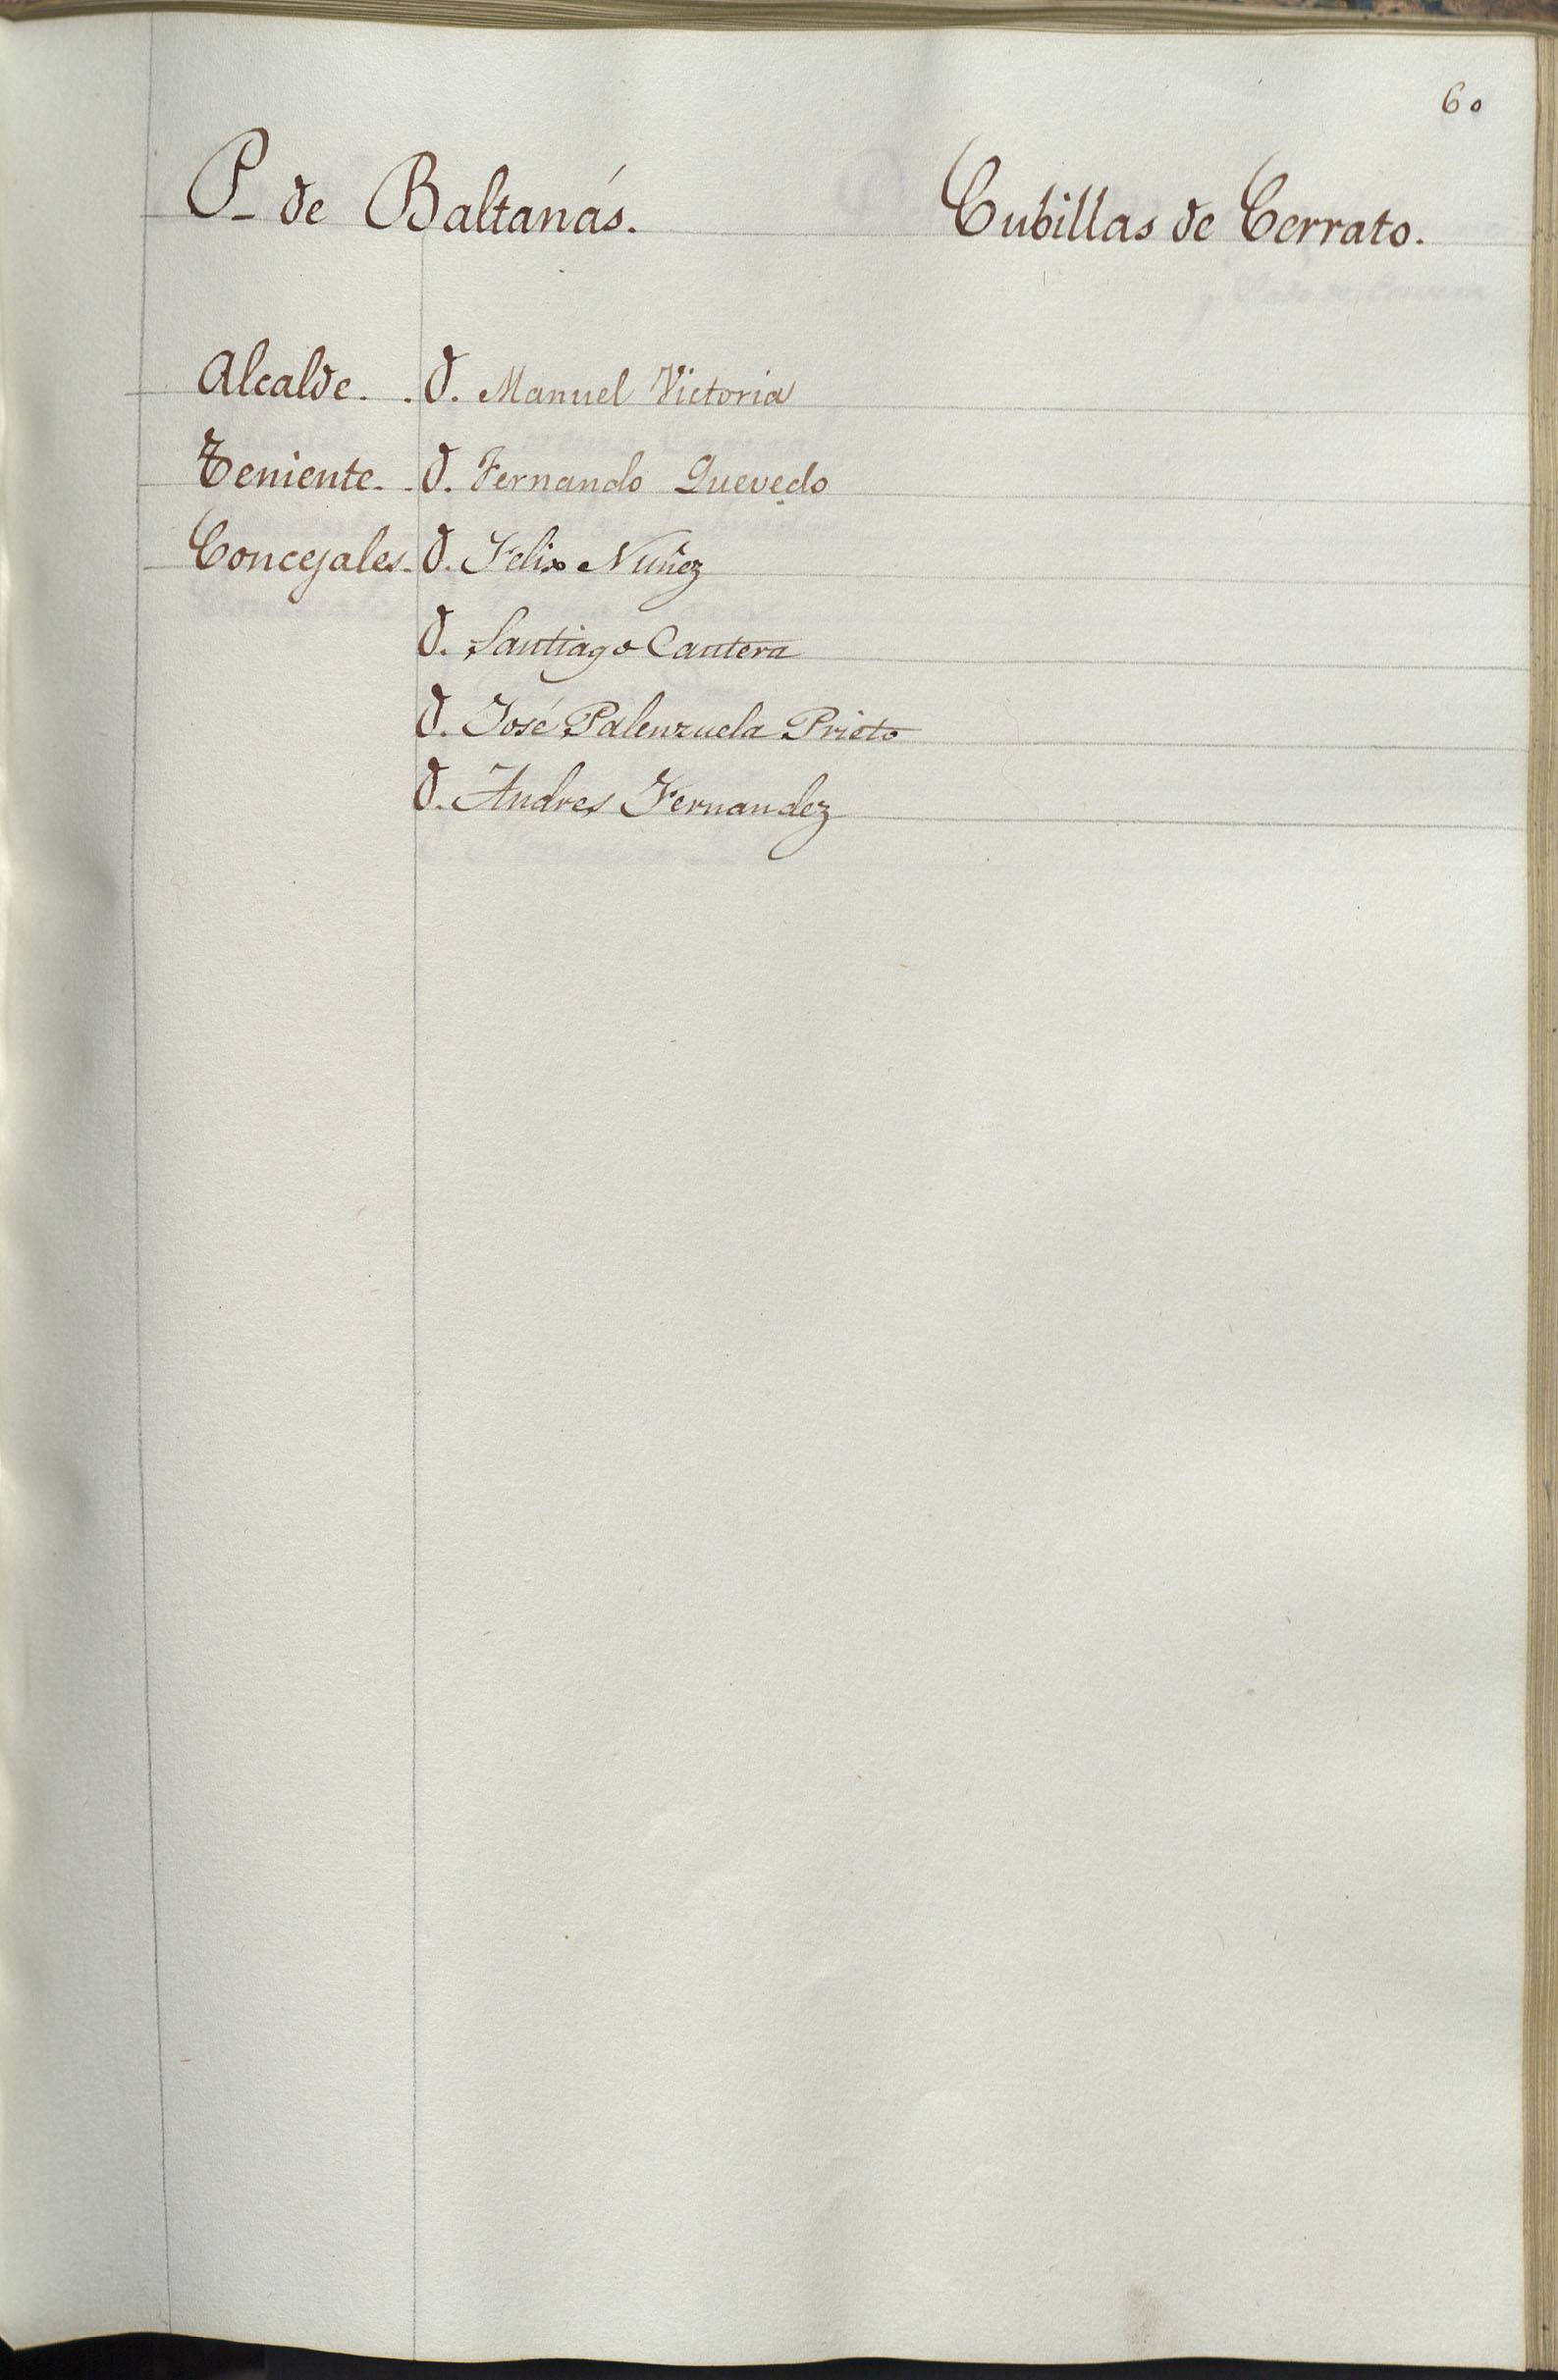 60
P. de Baltanás. Cubillas de Cerrato.
Alcalde. . D. Manuel Victoria
Teniente. . D. Fernando Quevedo
Concejales. D. Felix Nuñez
D. Santiago Cantera
D. José Palenzuela Prieto
D. Andres Fernandez